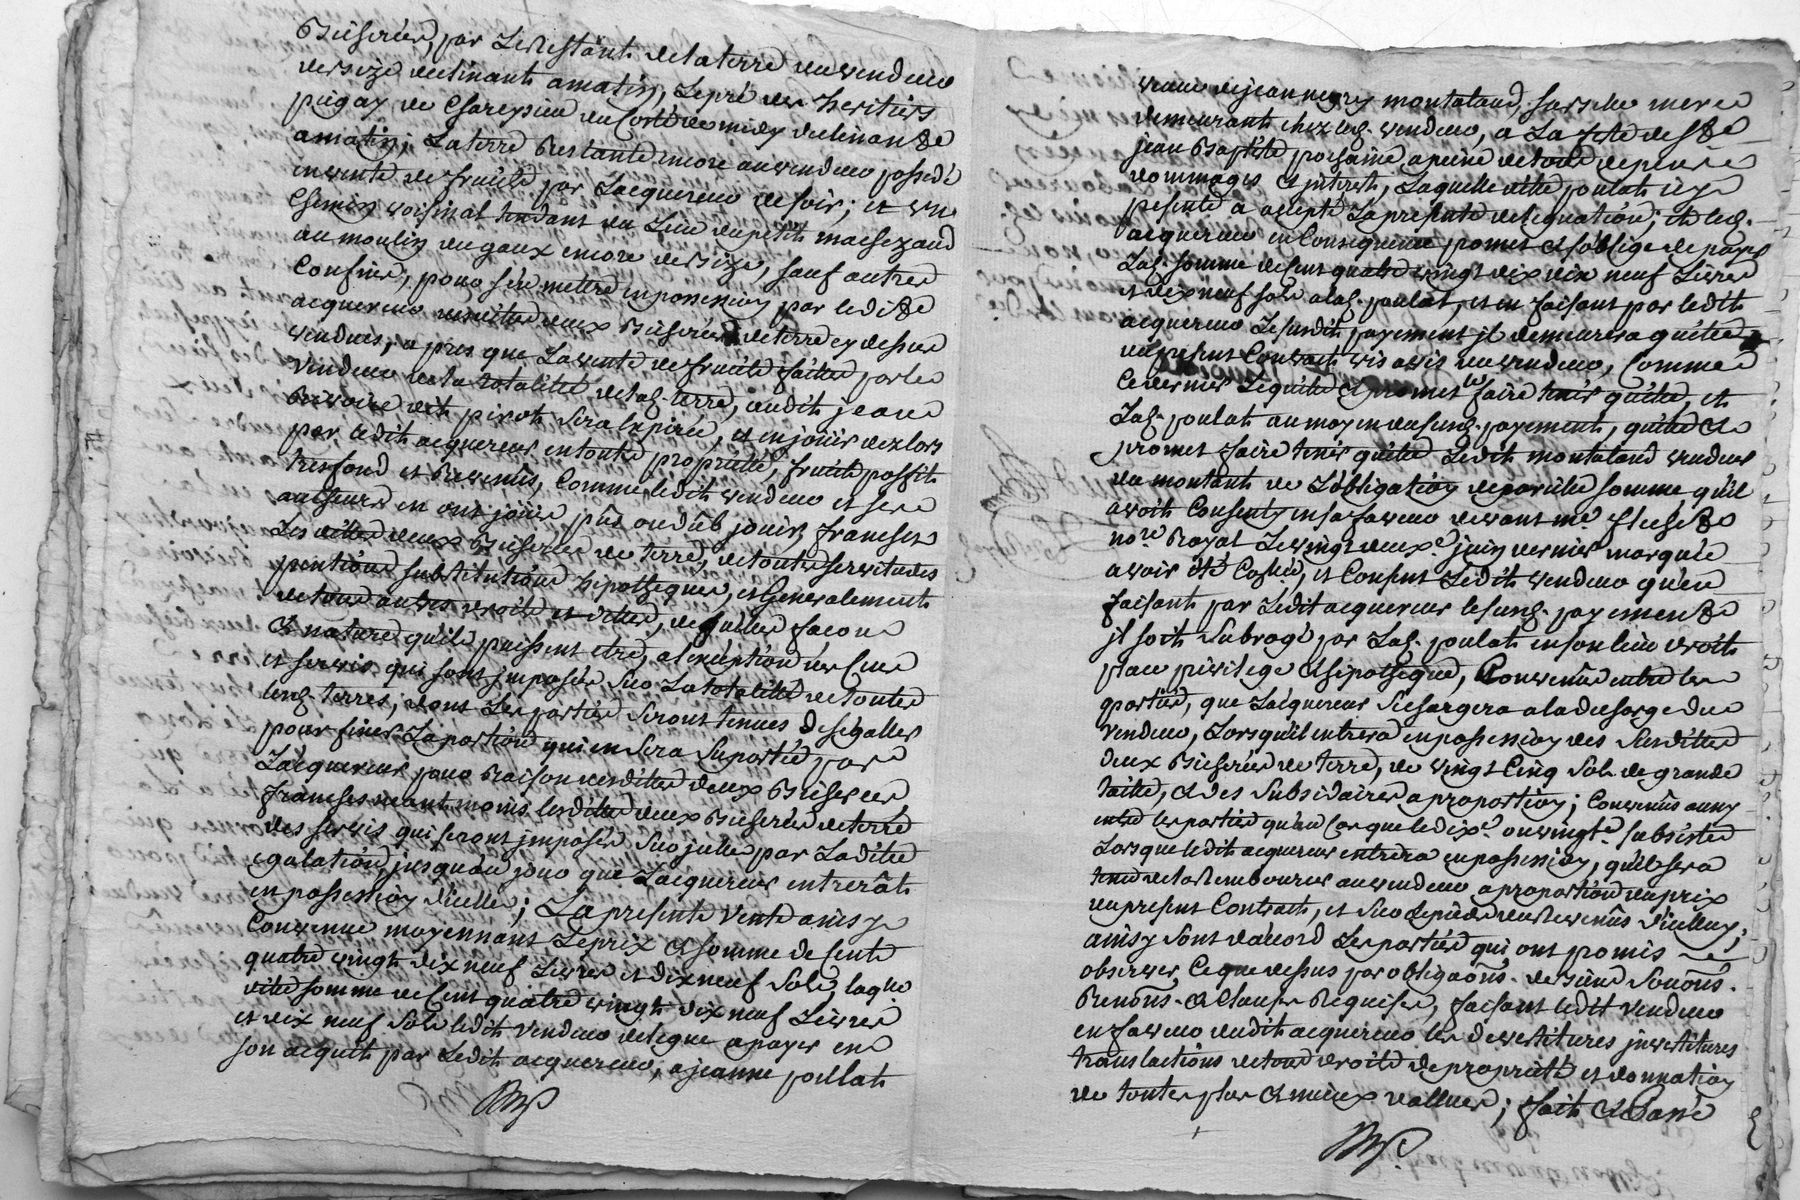 Bicherées, par Le Restant de la terre du vendeur
de vize declinant a matin, Le pré des heritiers
pugay de Chareyziu du Coté de midy declinant
a matin; La terre Restante encore au vendeur possedé
en vente de fruits par Lacquereur de soir; et un
Chemin voisinal tendant du Lieu du petit
au moulin de gaux encore de vize, sauf autres
Confins, pour s'en mettre en possession par ledit
acquereur desdites deux Bicherées de terre cy dessus
vendues, apres que La vente de fruits faitte par le
vendeur de la totalité de lad. terre, audit jean
pivot sera Expirée, et en jouir dez lors
par ledit acquereur en toute proprieté, fruits possit
tresfond et Revenûs, Comme ledit vendeur et ses
autheurs en ont jouis pûs ou dûb jouir, franches
Les dittes deux Bicherées de terre, de toutes servitudes
pentions substitutions hipotheques, et Generalement
de tous autres droits et dettes, de quelles façons
et nature qu'ils puissent etre, a l'exeption des Cens
et servis qui sont jmposés sur La totalité de toutes
lesd. terres, dont Les parties seront tenues desegaller
pour finer La portion qui en sera suportée par
L'acquereur pour Raison desdittes deux Bicherées
franches neant moins lesdittes deux Bicherées de terre
des servis qui seront jmposés sur jcelles par Laditte
egalation, jusqu'au jour que Lacquereur entrerât
en possession d'icelles; La presente vente ainsy
Convenue moyennant Le prix et somme de Cent
quatre vingt dix neuf Livres et dix neuf Sols, laq.lle
ditte somme de Cent quatre vingt dix neuf Livres
et dix neuf Sols ledit vendeur delegue a payer en
son acquit par Ledit acquereur, a jeanne poulat
veuve de jean negry montaland, sa mere
demeurant chez led. vendeur, a La fete de St
jean Baptiste prochaine a peine de tous depens
dommages et jnterest, Laquelle ditte poulat icy
presente a accepté La presente delegation; et led.
acquereur en Consequence promet et s'oblige de payer
Lad. somme de Cent quatre vingt dix neuf Livres
et dix neuf sols a lad. poulat, et en faisant par ledit
acquereur Le susdit payement jl demeurera quitte
du present Contract vis a vis du vendeur, Comme
Ce dernier L'equitte et promet le faire tenir quitte, et
Lad. poulat au moyen dususd. payement, quitte et
promet faire tenir quitte Ledit montaland vendeur
du montant de L'obligation de pareille somme qu'il
avoit Consenty en sa faveur devant me
no.re Royal Le vingt deux.e juin dernier marquée
avoir été Cozlée, et Consent Ledit vendeur qu'en
faisant par Ledit acquereur le susd. payement
jl soit Subrogé par Lad. poulat en son lieu droit
place privilege et hipotheque, Convenû entre les
parties, que L'acquereur se chargera a la decharge du
vendeur, Lorsqu'il entrera en possession des susdittes
deux Bicherées de terre, de vingt Cinq Sols de grande
taille, et des subsidaires a proportion; Convenûs aussy
entre les parties qu'au Cas que le dix.e ou vingt.e subsiste
Lorsque ledit acquereur entrera en possession, qu'il sera
tenu de la Rembourser au vendeur a proportion du prix
du present Contract, et sur Le pied du Revenûs d'icelluy;
ainsy sont d'accord Les parties qui ont promis
observer Ce que dessus par obligaôns. Renôns. et Clauses Requises, faisant ledit vendeur
en faveur dudit acquereur les devestitures jnvestitures
translactions de tous droits de proprieté et donnation
de toutes plus et mieux vallues; fait et Passé